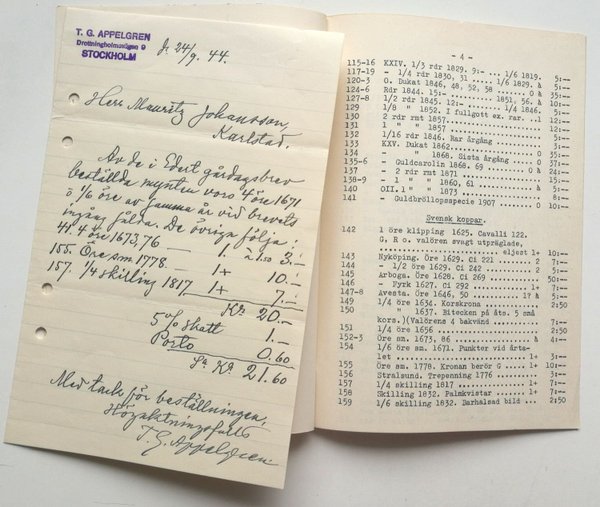 T. G. APPELGREN
Drottningholmsvägen 9
STOCKHOLM
d. 24/9. 44.
Herr Mauritz Johansson,
Karlstad.
Av de i Edert gårdagsbrev
beställda mynten voro 4 öre 1671
o 1/6 öre av samma år vid brevets
ingång sålda. De övriga följa:
4 öre 1673, 76 — 1. à 1.50 3.—
155. Öre sm. 1778. — 1+ 10.—
157. 1/4 skilling 1817 1+ 7.—
Kr 20.—
5% skatt 1.—
Porto 0.60
Sa Kr 21.60
Med tack för beställningen,
Högaktningsfullt
T. G. Appelgren.
- 4 -
115-16 XXIV. 1/3 rdr 1829. 9:- ... 1/6 1819. 5:--
117-19 - 1/4 rdr 1830, 31 ..... 1/6 1829. à 5:--
120-3 O. Dukat 1846, 48, 52, 58 ........ 0 à 35:--
124-6 Rdr 1844. 15:- ......... 1851, 56. à 10:--
127-8 1/2 rdr 1845. 12:- ...... 1/4 1846. 5:--
129 1/8 " 1852. I fullgott ex. rar. ..1 12:--
130 2 rdr rmt 1857
131 1 " " 1857
132 1/16 rdr 1846. Rar årgång
133 XXV. Dukat 1862
134 - " 1868. Sista årgång
135-6 - Guldcarolin 1868. 69
137 - 2 rdr rmt 1871
138-9 - 1 " " 1860, 61
140 OII. 1 " " 1873
141 - Guldbröllopsspecie 1907
Svensk koppar.
142 1 öre klipping 1625. Cavalli 122.
G, R o. valören svagt utpräglade,
eljest 1+ 10:--
143 Nyköping. Öre 1629. Ci 221 .. 2 7:--
144 - 1/2 öre 1629. Ci 242 2 5:--
145 Arboga. Öre 1628. Ci 269 50:--
146 - Fyrk 1627. Ci 292 1+ 7:--
147-8 Avesta. Öre 1646, 50 1? à 5:--
149 1/4 öre 1634. Korskrona 2:50
150 " 1637. Bitecken på åts. 5 små
kors.)(Valörens 4 bakvänd 7:--
151 1/4 öre 1656 2:50
152-3 Öre sm. 1673, 86 à 4:--
154 1/6 öre sm. 1671. Punktor vid årta-
let 1+ 3:--
155 Öre sm. 1778. Kronan berör G 1+ 10:--
156 Stralsund. Trepenning 1776 3:--
157 1/4 skilling 1817 1+ 7:--
158 Skilling 1832. Palmkvistar 1+ 7:--
159 1/6 skilling 1832. Barhalsad bild ... 2:50